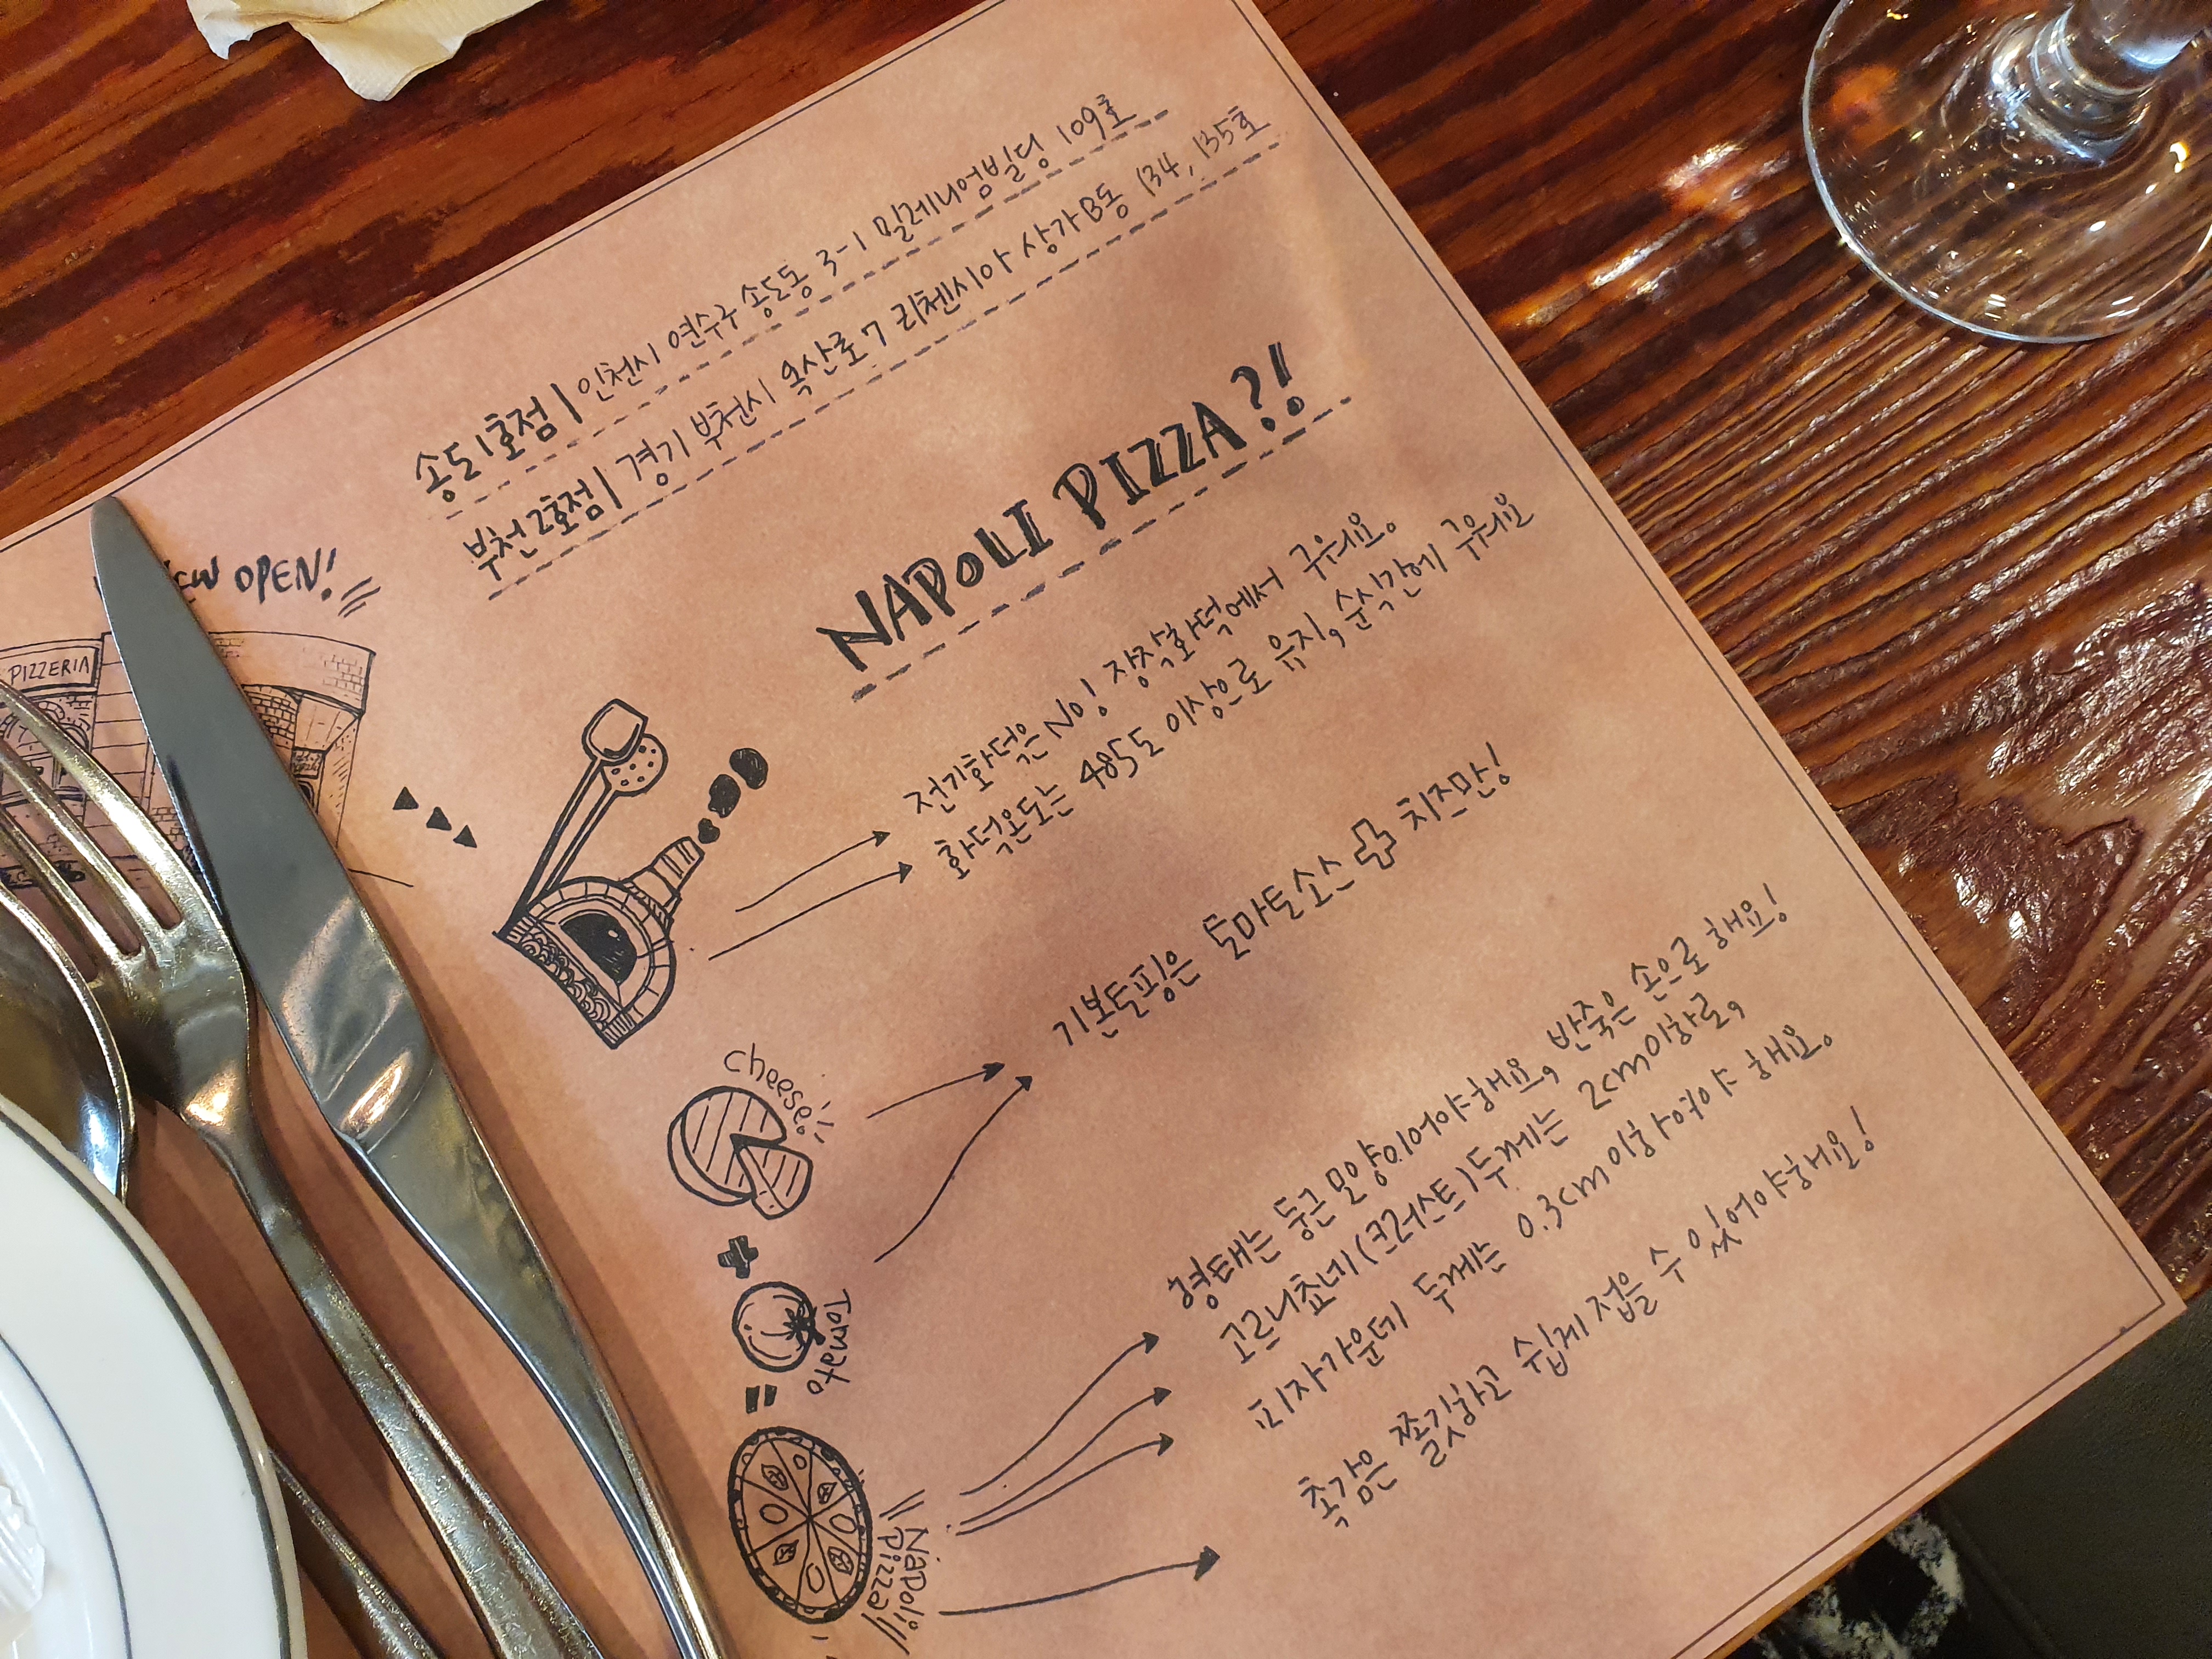 송도1호점 | 인천시 연수구 송도동 3-1 밀레니엄빌딩 109호
부천2호점 | 경기 부천시 옥산로7 리첸시아 상가B동 134, 135호
OPEN!
PIZZERIA
NAPOLI PIZZA?!
전기화덕은 NO! 장작화덕에서 구워요.
화덕온도는 485도 이상으로 유지, 순식간에 구워요
기본토핑은 토마토소스 + 치즈만!
Cheese.
+
Tomato
=
Napoli
Pizza
형태는 둥근 모양이어야해요, 반죽은 손으로 해요!
고르니쵸네(크러스트)두께는 2cm이하로,
피자가운데 두께는 0.3cm이하여야 해요.
촉감은 쫄깃하고 쉽게 접을 수 있어야해요!